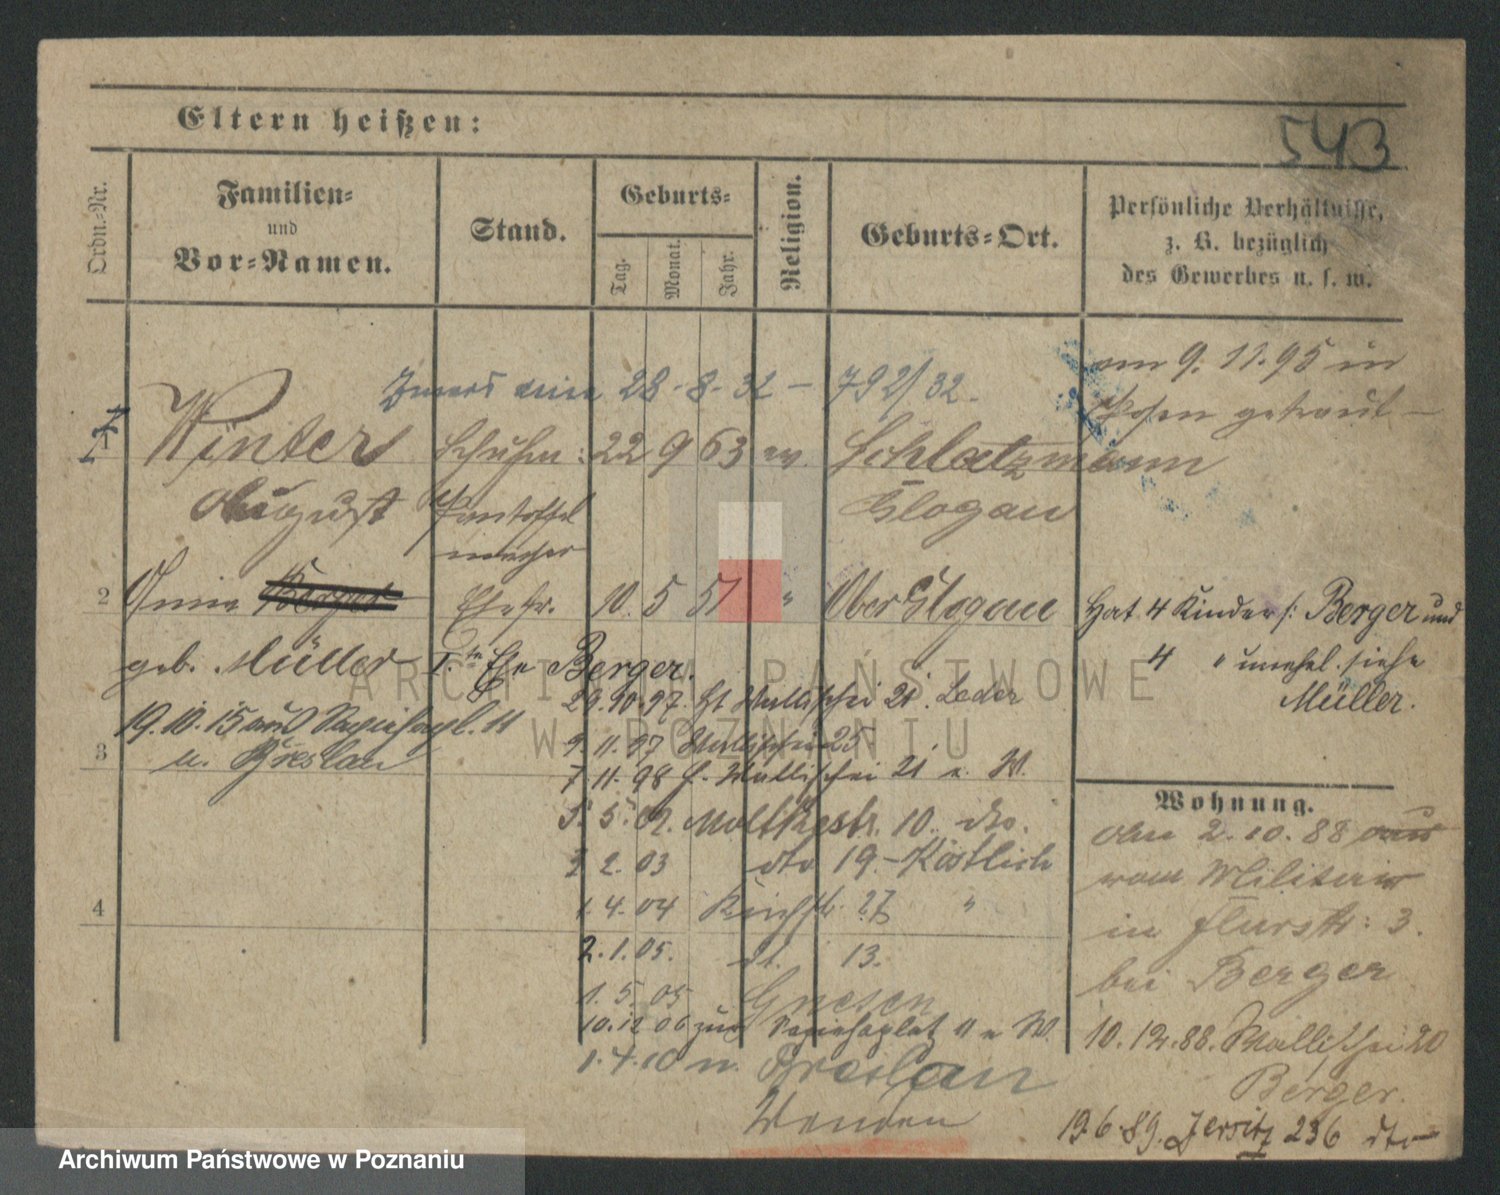 Eltern heißen:
543
Ordn.-Nr.
Familien-
und
Vor-Namen.
Stand.
Geburts-
Tag.
Monat.
Jahr.
Religion.
Geburts-Ort.
Persönliche Verhältnisse,
z. B. bezüglich
des Gewerbes u. s. w.
28-8-32 - 792/32.
am 9.11.95 in
Posen getraut -
1 Winters Schuhm: 22 9 63 ev. Schlatzmann
August Pantoffel Glogau
macher
2 Berger Ehefr. 10. 5 51 " Ober Glogau
Hat 4 Kinder /: Berger und
geb. Müller I. te Ehe Berger.
4 " unehel. siehe
Müller.
29.10.97. Wallischei 21. Leder
19.10.15 aus Sapiehapl. 11
n. Breslau
3
9.11.97 Wallischei 25
7.11.98 Wallischei 21 W.
Wohnung.
5. 5. 02. Moltkestr. 10. dto.
2. 03 dto 19. - Köstlich
1.4.04 Kirchstr. 27 "
2.1.05. dt. 13.
1.5.05 Gnesen
10.12 06 zur Sapiehaplatz 11 W.
1.4.10 n. Breslau
2.10.88 aus
vom Militair
4
in Flurstr: 3.
bei Berger
10.12.88. Wallischei 20
Berger.
19.6.89. Jersitz 236 dto
Archiwum Państwowe w Poznaniu
ARCHIWUM PAŃSTWOWE
W POZNANIU